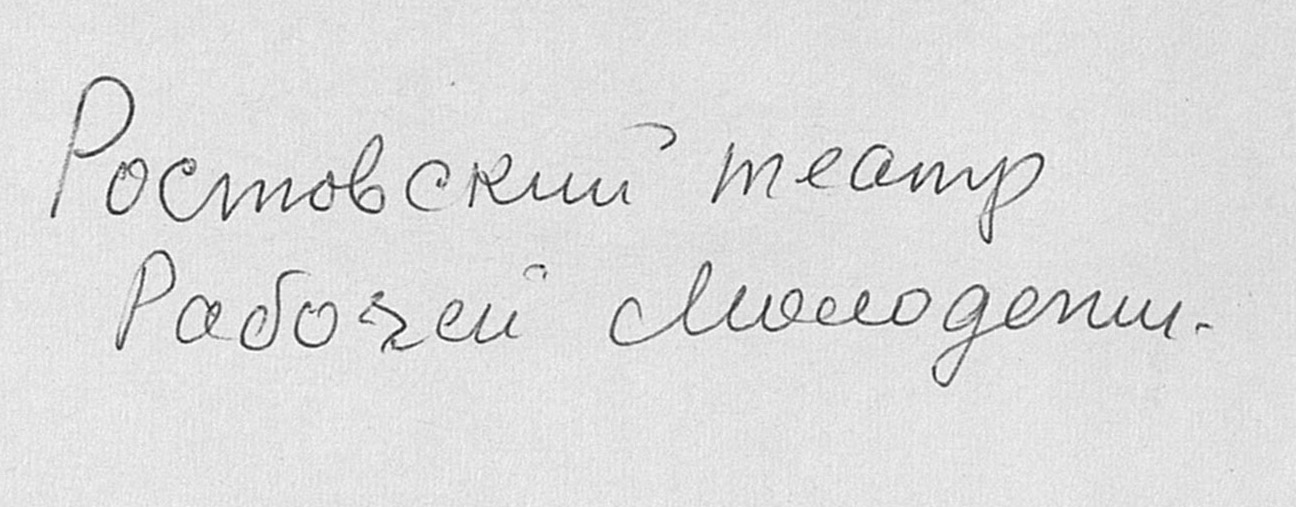 Ростовский театр
Рабочей Молодежи.